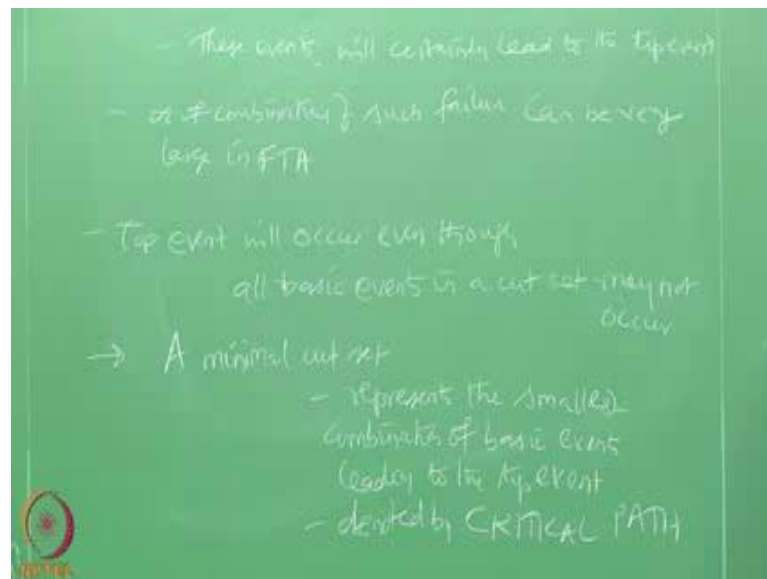 - These events will certainly lead to the top event
- # of combination of such failure can be very
large in FTA
- Top event will occur even though
all basic events in a cut set may not
occur
→ A minimal cut set
- represents the smallest
combination of basic events
leading to the top event
- denoted by CRITICAL PATH
NPTEL